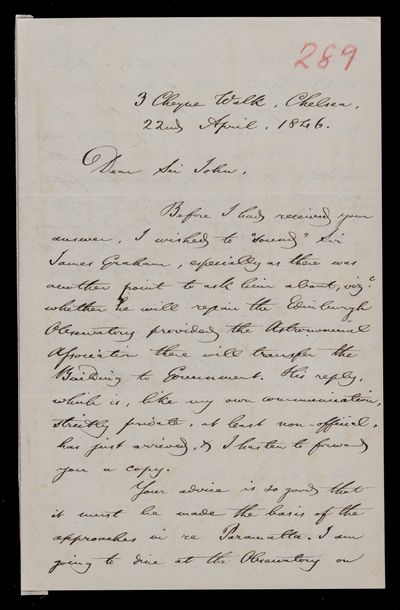 289
3 Cheyne Walk, Chelsea.
22nd April, 1846.
Dear Sir John,
Before I had received your
answer, I wished to "sound" Sir
James Graham, especially as there was
another point to ask him about, vizt.
whether he will repair the Edinburgh
Observatory provided the Astronomical
Association there will transfer the
Building to Government. His reply,
which is, like my own communication,
strictly private, at least non-official,
has just arrived, & I hasten to forward
you a copy.
Your advice is so good that
it must be made the basis of the
approaches in re Paramatta. I am
going to dine at the Observatory on